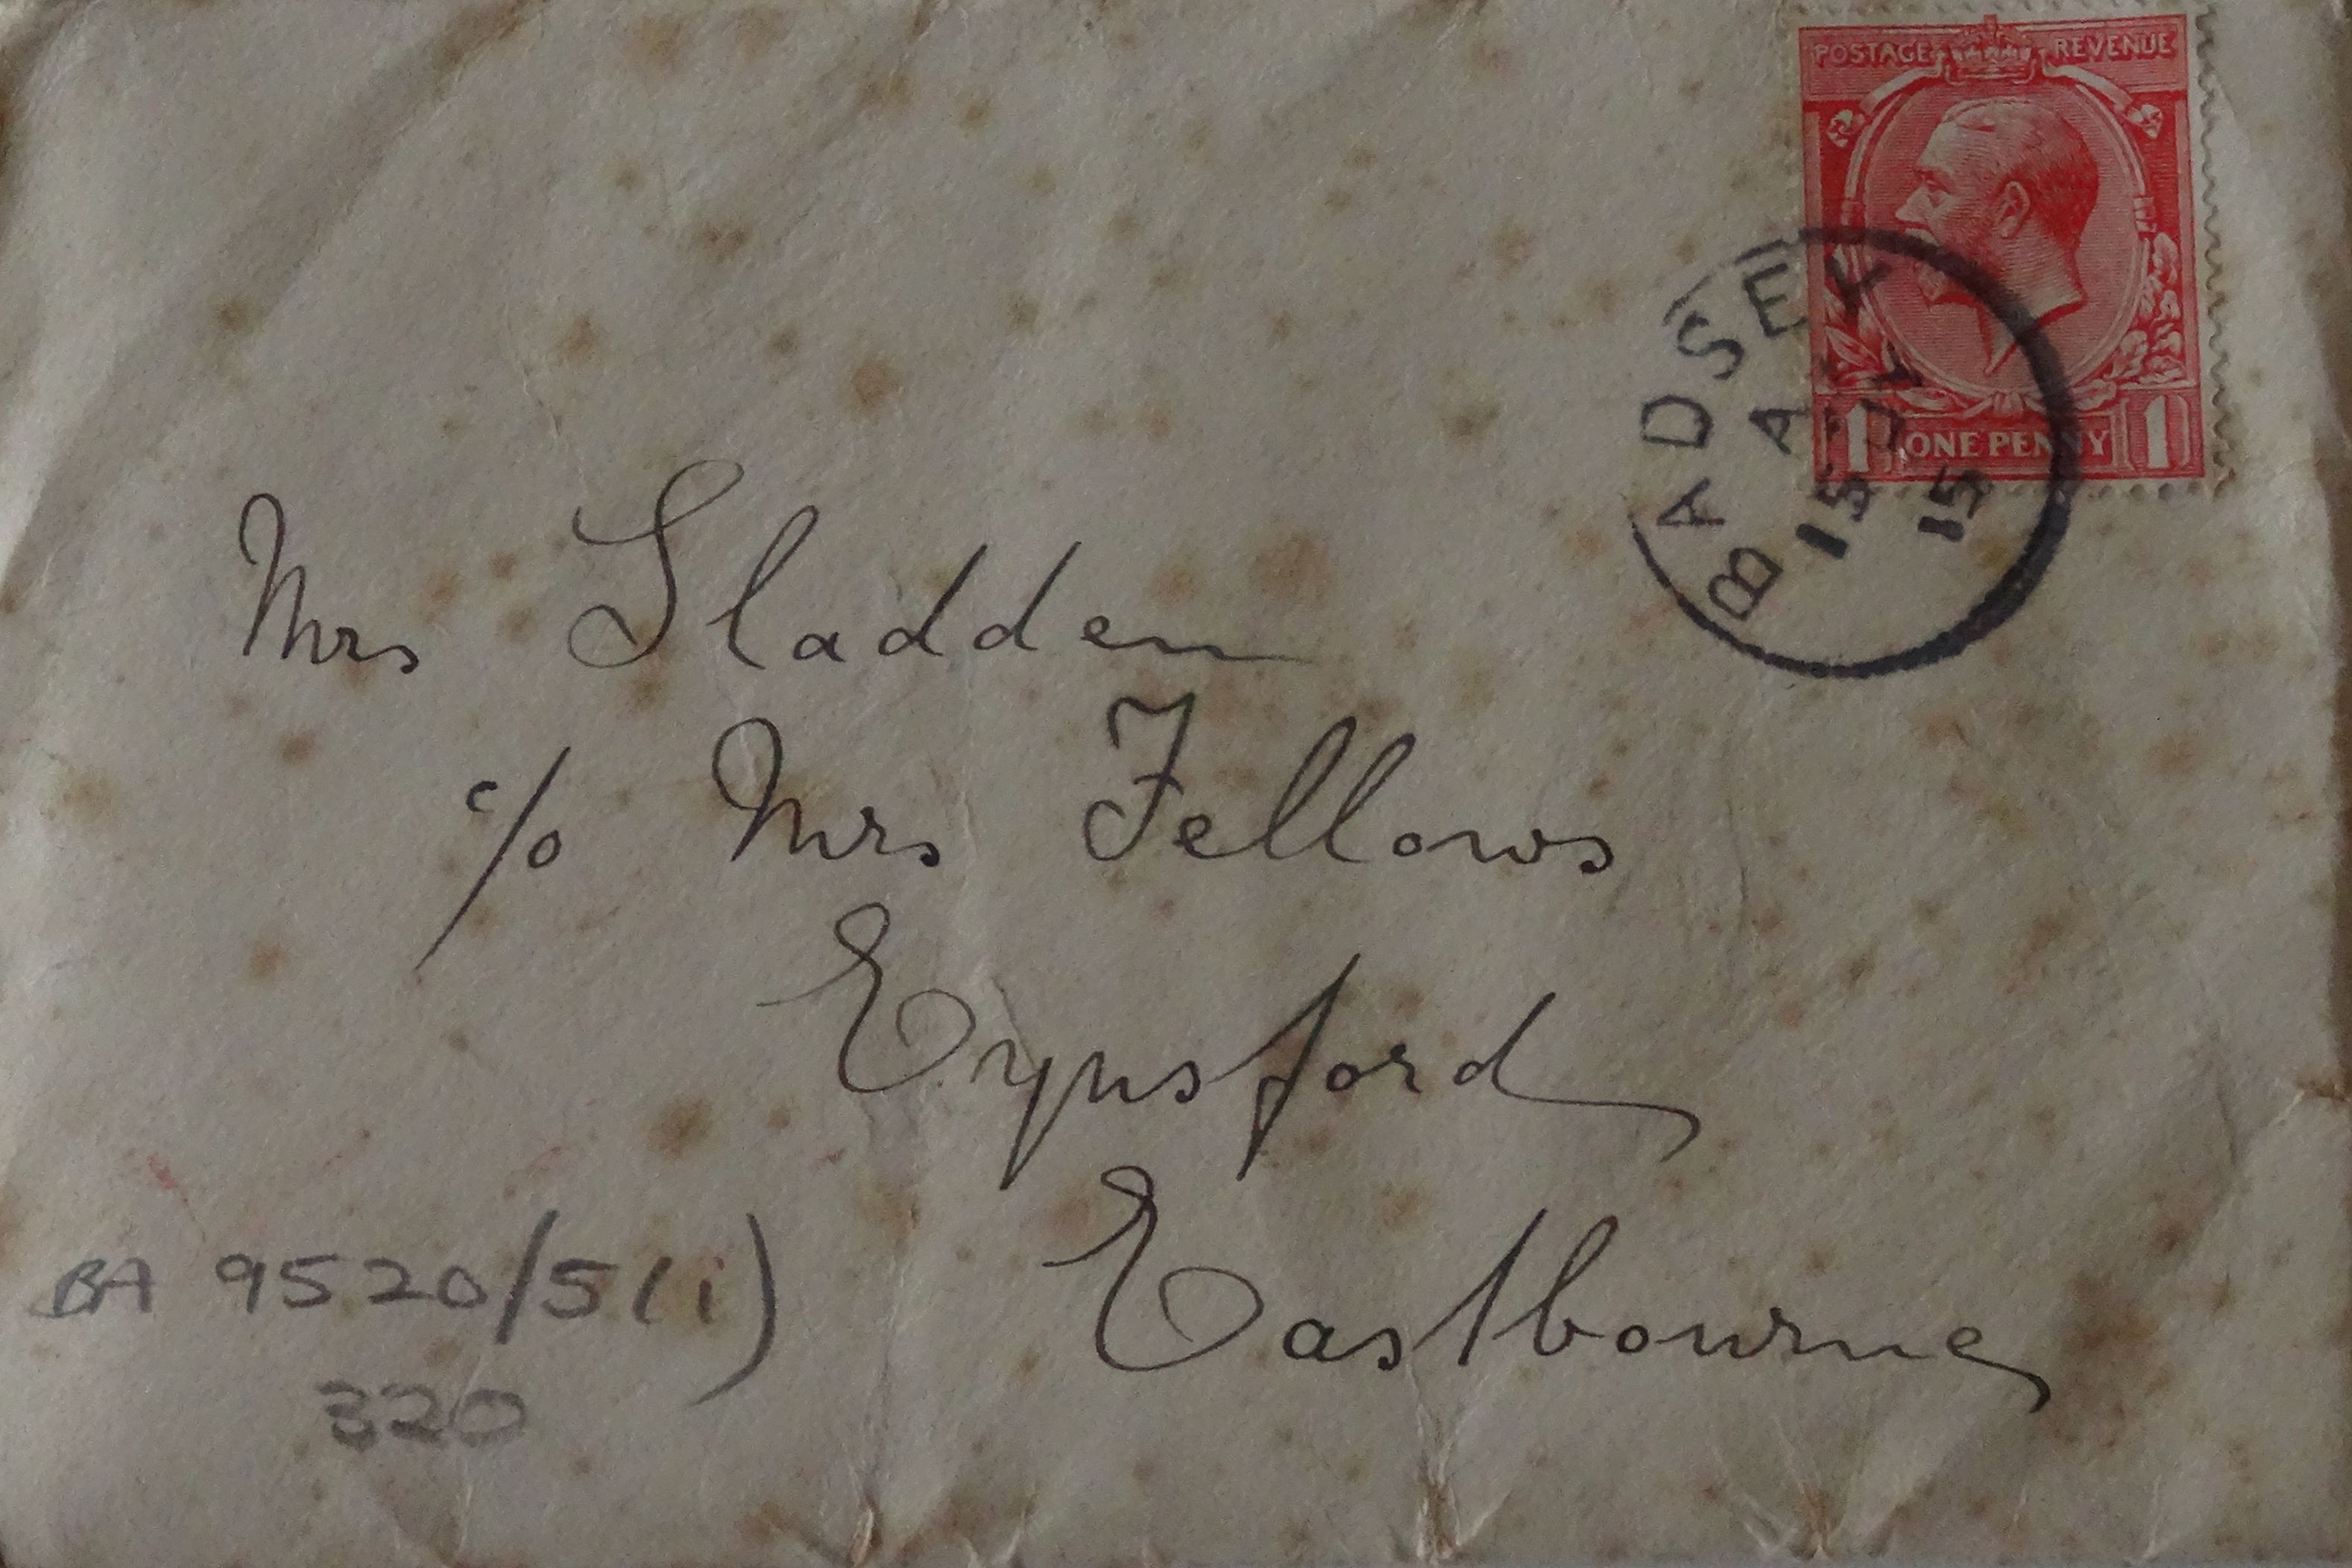 POSTAGE REVENUE
1 ONE PENNY 1
BADSEY
A
15 JY
15
Mrs Sladden
c/o Mrs Fellows
Eynsford
Eastbourne
BA 9520/5(i)
320